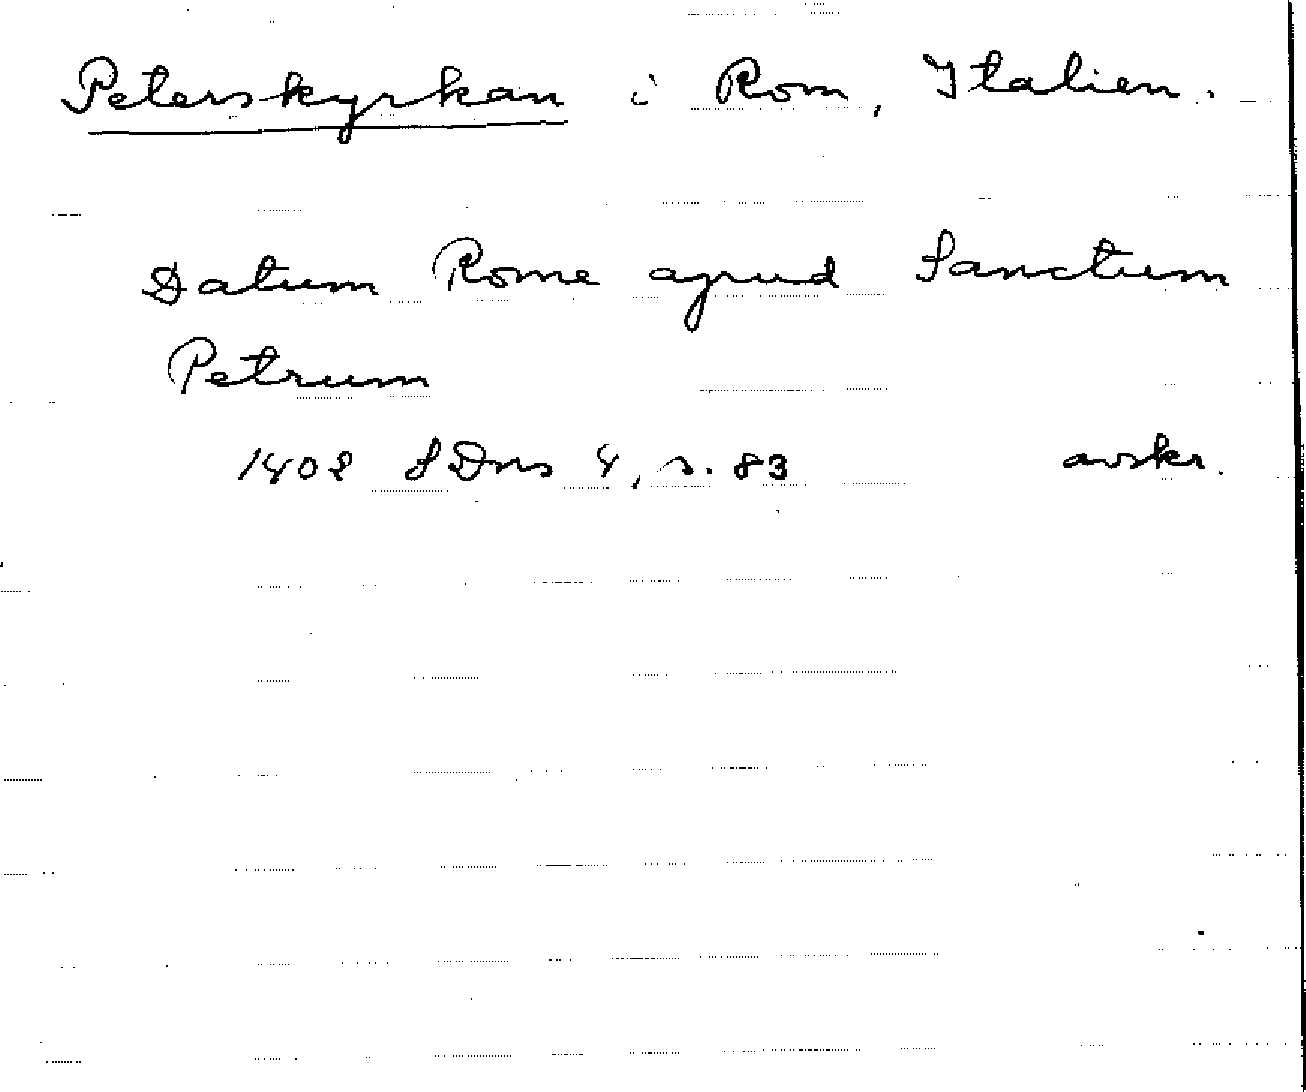 Peterskyrkan i Rom, Italien.
Datum Rome apud Sanctum
Petrum
1402 SDns 4, s. 83 avskr.